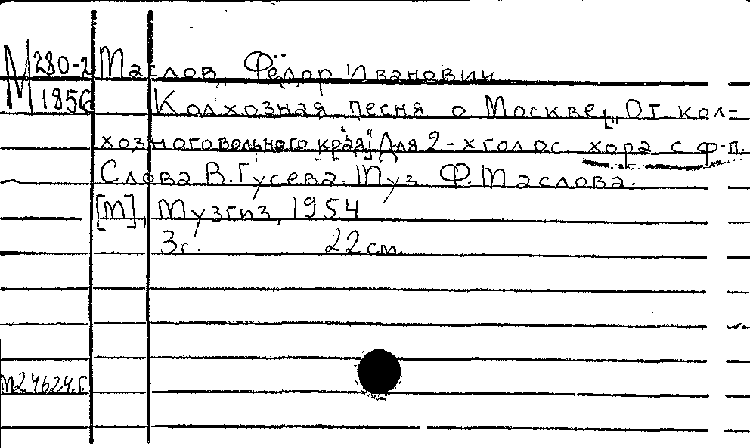 М 280-2 Маслов, Фёдор Иванович
1856 Колхозная песня о Москве [„От кол-
хозного вольного края"] Для 2-х голос. хора с ф-п.
Слова В. Гусева. Муз Ф. Маслова.
[М], Музгиз, 1954
3с. 22 см.